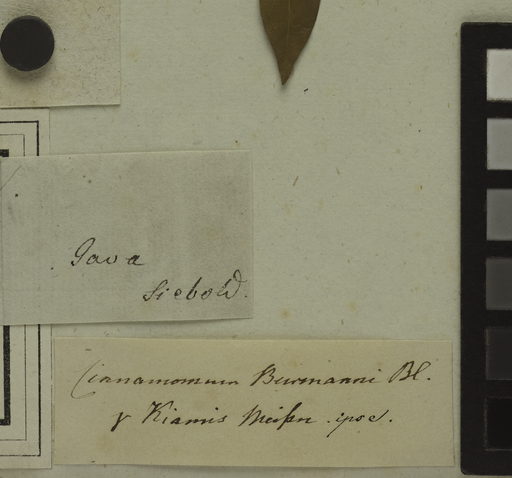 Java
Siebold.
Cinnamomum Burmanni Bl.
γ Kiamis Meißn. ipse.